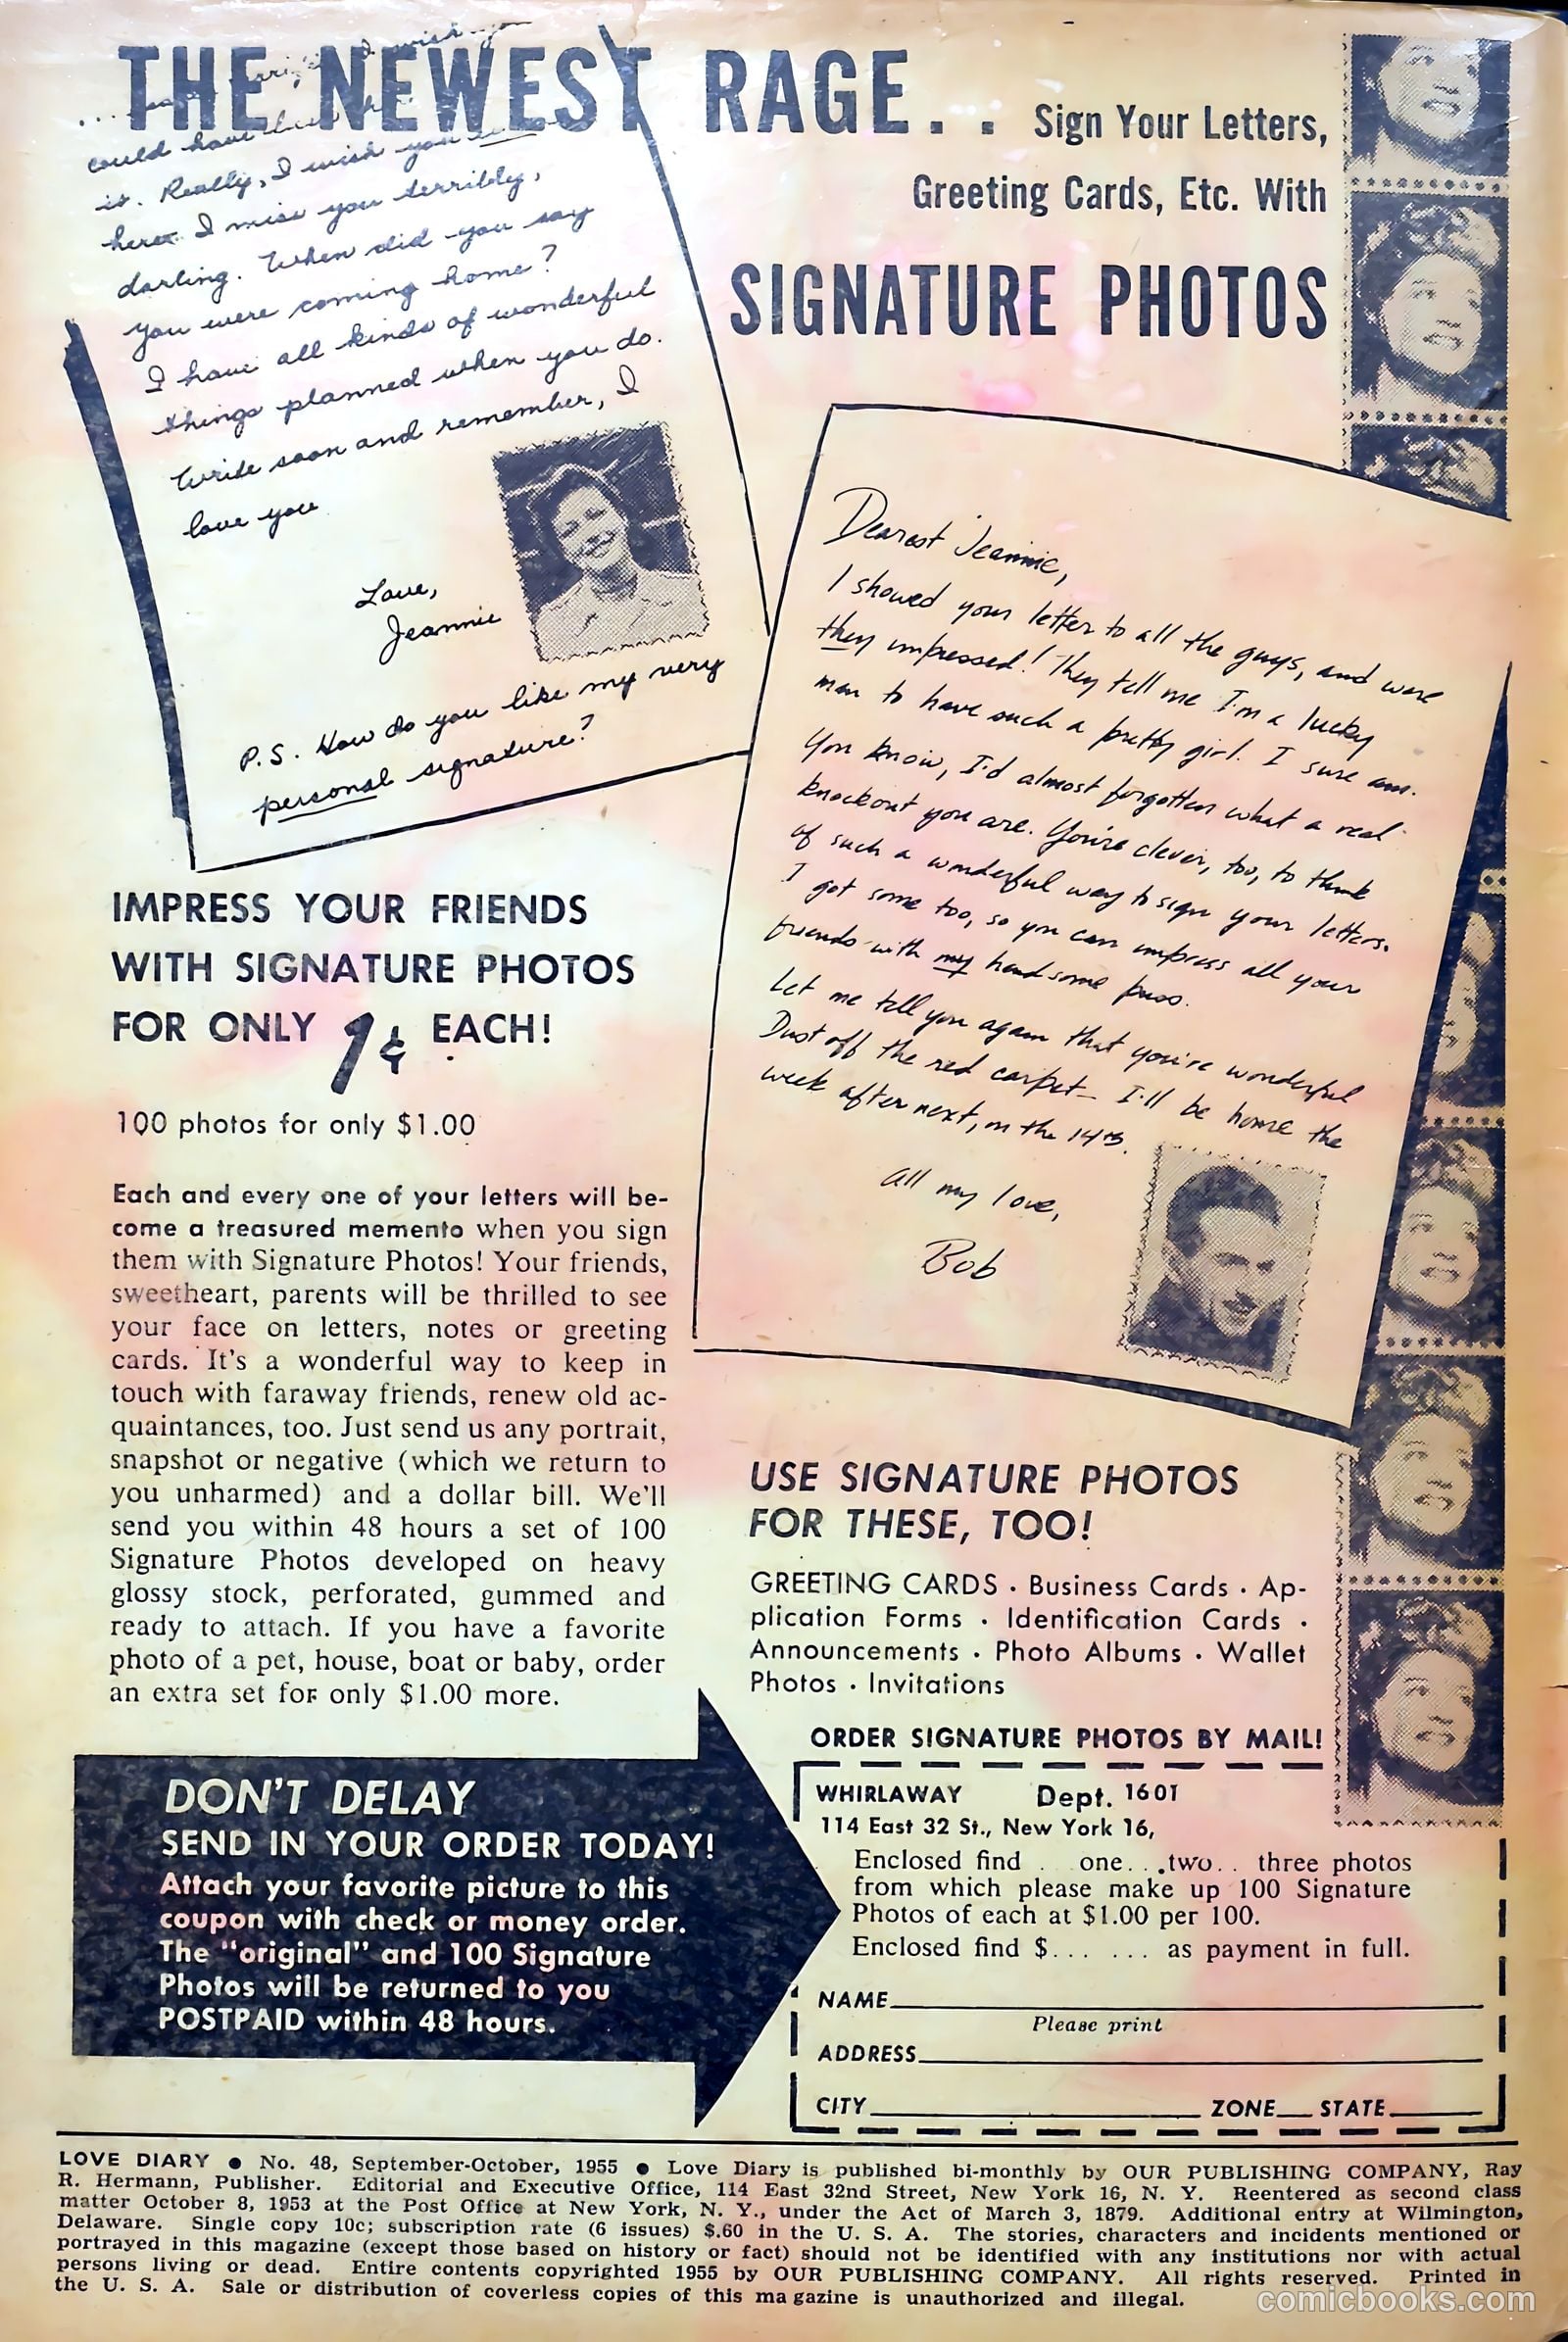 THE NEWEST RAGE..
Sign Your Letters,
Greeting Cards, Etc. With
SIGNATURE PHOTOS
wish you
could have
is. Really, I wish you were
here. I miss you terribly,
darling. When did you say
you were coming home?
I have all kinds of wonderful
things planned when you do.
Write soon and remember, I
love you
Love,
Jeannie
P.S. How do you like my very
personal signature?
Dearest Jeannie,
I showed your letter to all the guys, and were
they impressed! They tell me I'm a lucky
man to have such a pretty girl. I sure am.
You know, I'd almost forgotten what a real
knockout you are. You're clever, too, to think
of such a wonderful way to sign your letters.
I got some too, so you can impress all your
friends with my handsome puss.
Let me tell you again that you're wonderful
Dust off the red carpet- I'll be home the
week after next, on the 14th.
All my love,
Bob
IMPRESS YOUR FRIENDS
WITH SIGNATURE PHOTOS
FOR ONLY 1¢ EACH!
100 photos for only $1.00
Each and every one of your letters will be-
come a treasured memento when you sign
them with Signature Photos! Your friends,
sweetheart, parents will be thrilled to see
your face on letters, notes or greeting
cards. It's a wonderful way to keep in
touch with faraway friends, renew old ac-
quaintances, too. Just send us any portrait,
snapshot or negative (which we return to
you unharmed) and a dollar bill. We'll
send you within 48 hours a set of 100
Signature Photos developed on heavy
glossy stock, perforated, gummed and
ready to attach. If you have a favorite
photo of a pet, house, boat or baby, order
an extra set for only $1.00 more.
USE SIGNATURE PHOTOS
FOR THESE, TOO!
GREETING CARDS · Business Cards · Ap-
plication Forms · Identification Cards ·
Announcements · Photo Albums · Wallet
Photos · Invitations
DON'T DELAY
SEND IN YOUR ORDER TODAY!
Attach your favorite picture to this
coupon with check or money order.
The "original" and 100 Signature
Photos will be returned to you
POSTPAID within 48 hours.
ORDER SIGNATURE PHOTOS BY MAIL!
WHIRLAWAY Dept. 1601
114 East 32 St., New York 16,
Enclosed find . one. . .two. . three photos
from which please make up 100 Signature
Photos of each at $1.00 per 100.
Enclosed find $. . . . . . as payment in full.
NAME
Please print
ADDRESS
CITY ZONE STATE
LOVE DIARY ● No. 48, September-October, 1955 ● Love Diary is published bi-monthly by OUR PUBLISHING COMPANY, Ray
R. Hermann, Publisher. Editorial and Executive Office, 114 East 32nd Street, New York 16, N. Y. Reentered as second class
matter October 8, 1953 at the Post Office at New York, N. Y., under the Act of March 3, 1879. Additional entry at Wilmington,
Delaware. Single copy 10c; subscription rate (6 issues) $.60 in the U. S. A. The stories, characters and incidents mentioned or
portrayed in this magazine (except those based on history or fact) should not be identified with any institutions nor with actual
persons living or dead. Entire contents copyrighted 1955 by OUR PUBLISHING COMPANY. All rights reserved. Printed in
the U. S. A. Sale or distribution of coverless copies of this magazine is unauthorized and illegal.
comicbooks.com